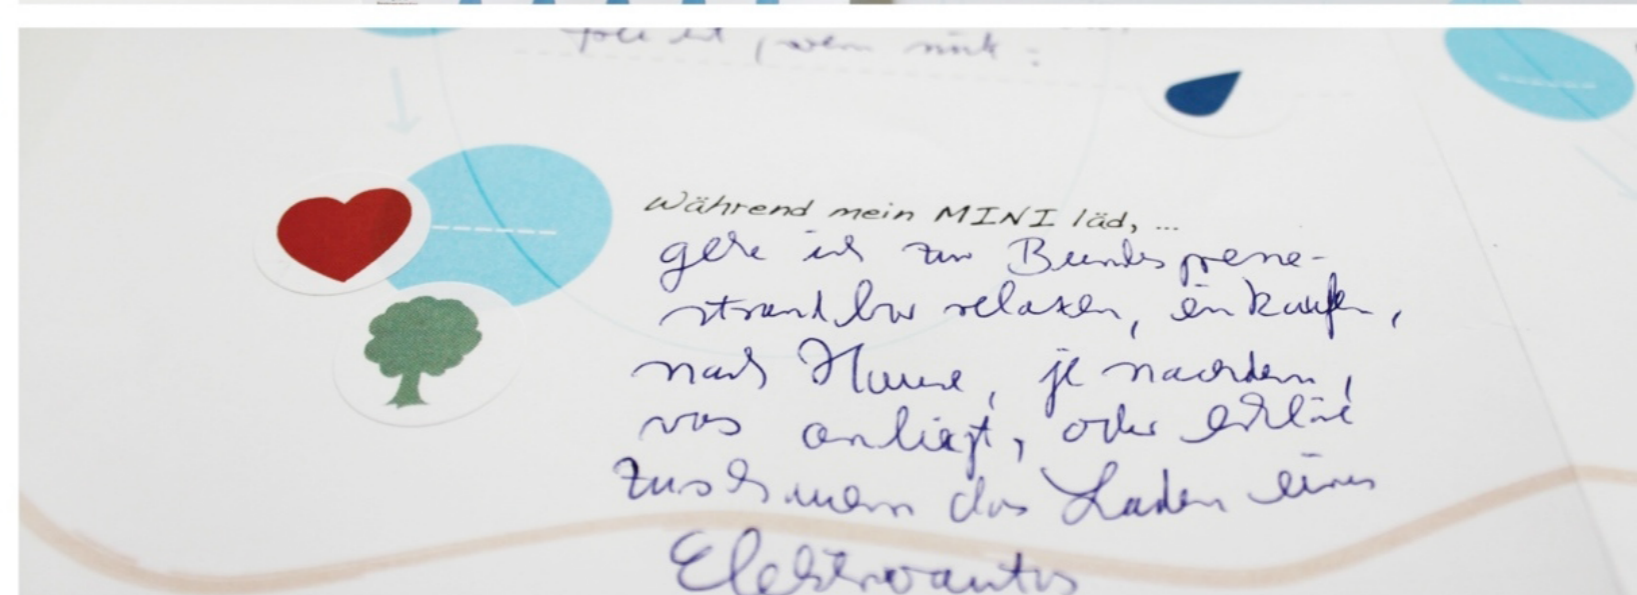 frei ist, wenn nicht :
Während mein MINI läd, ...
gehe ich zur Bundespresse-
strandbar relaxen, einkaufen,
nach Hause, je nachdem,
was anliegt, oder erkläre
Zuschauern das Laden eines
Elektroautos